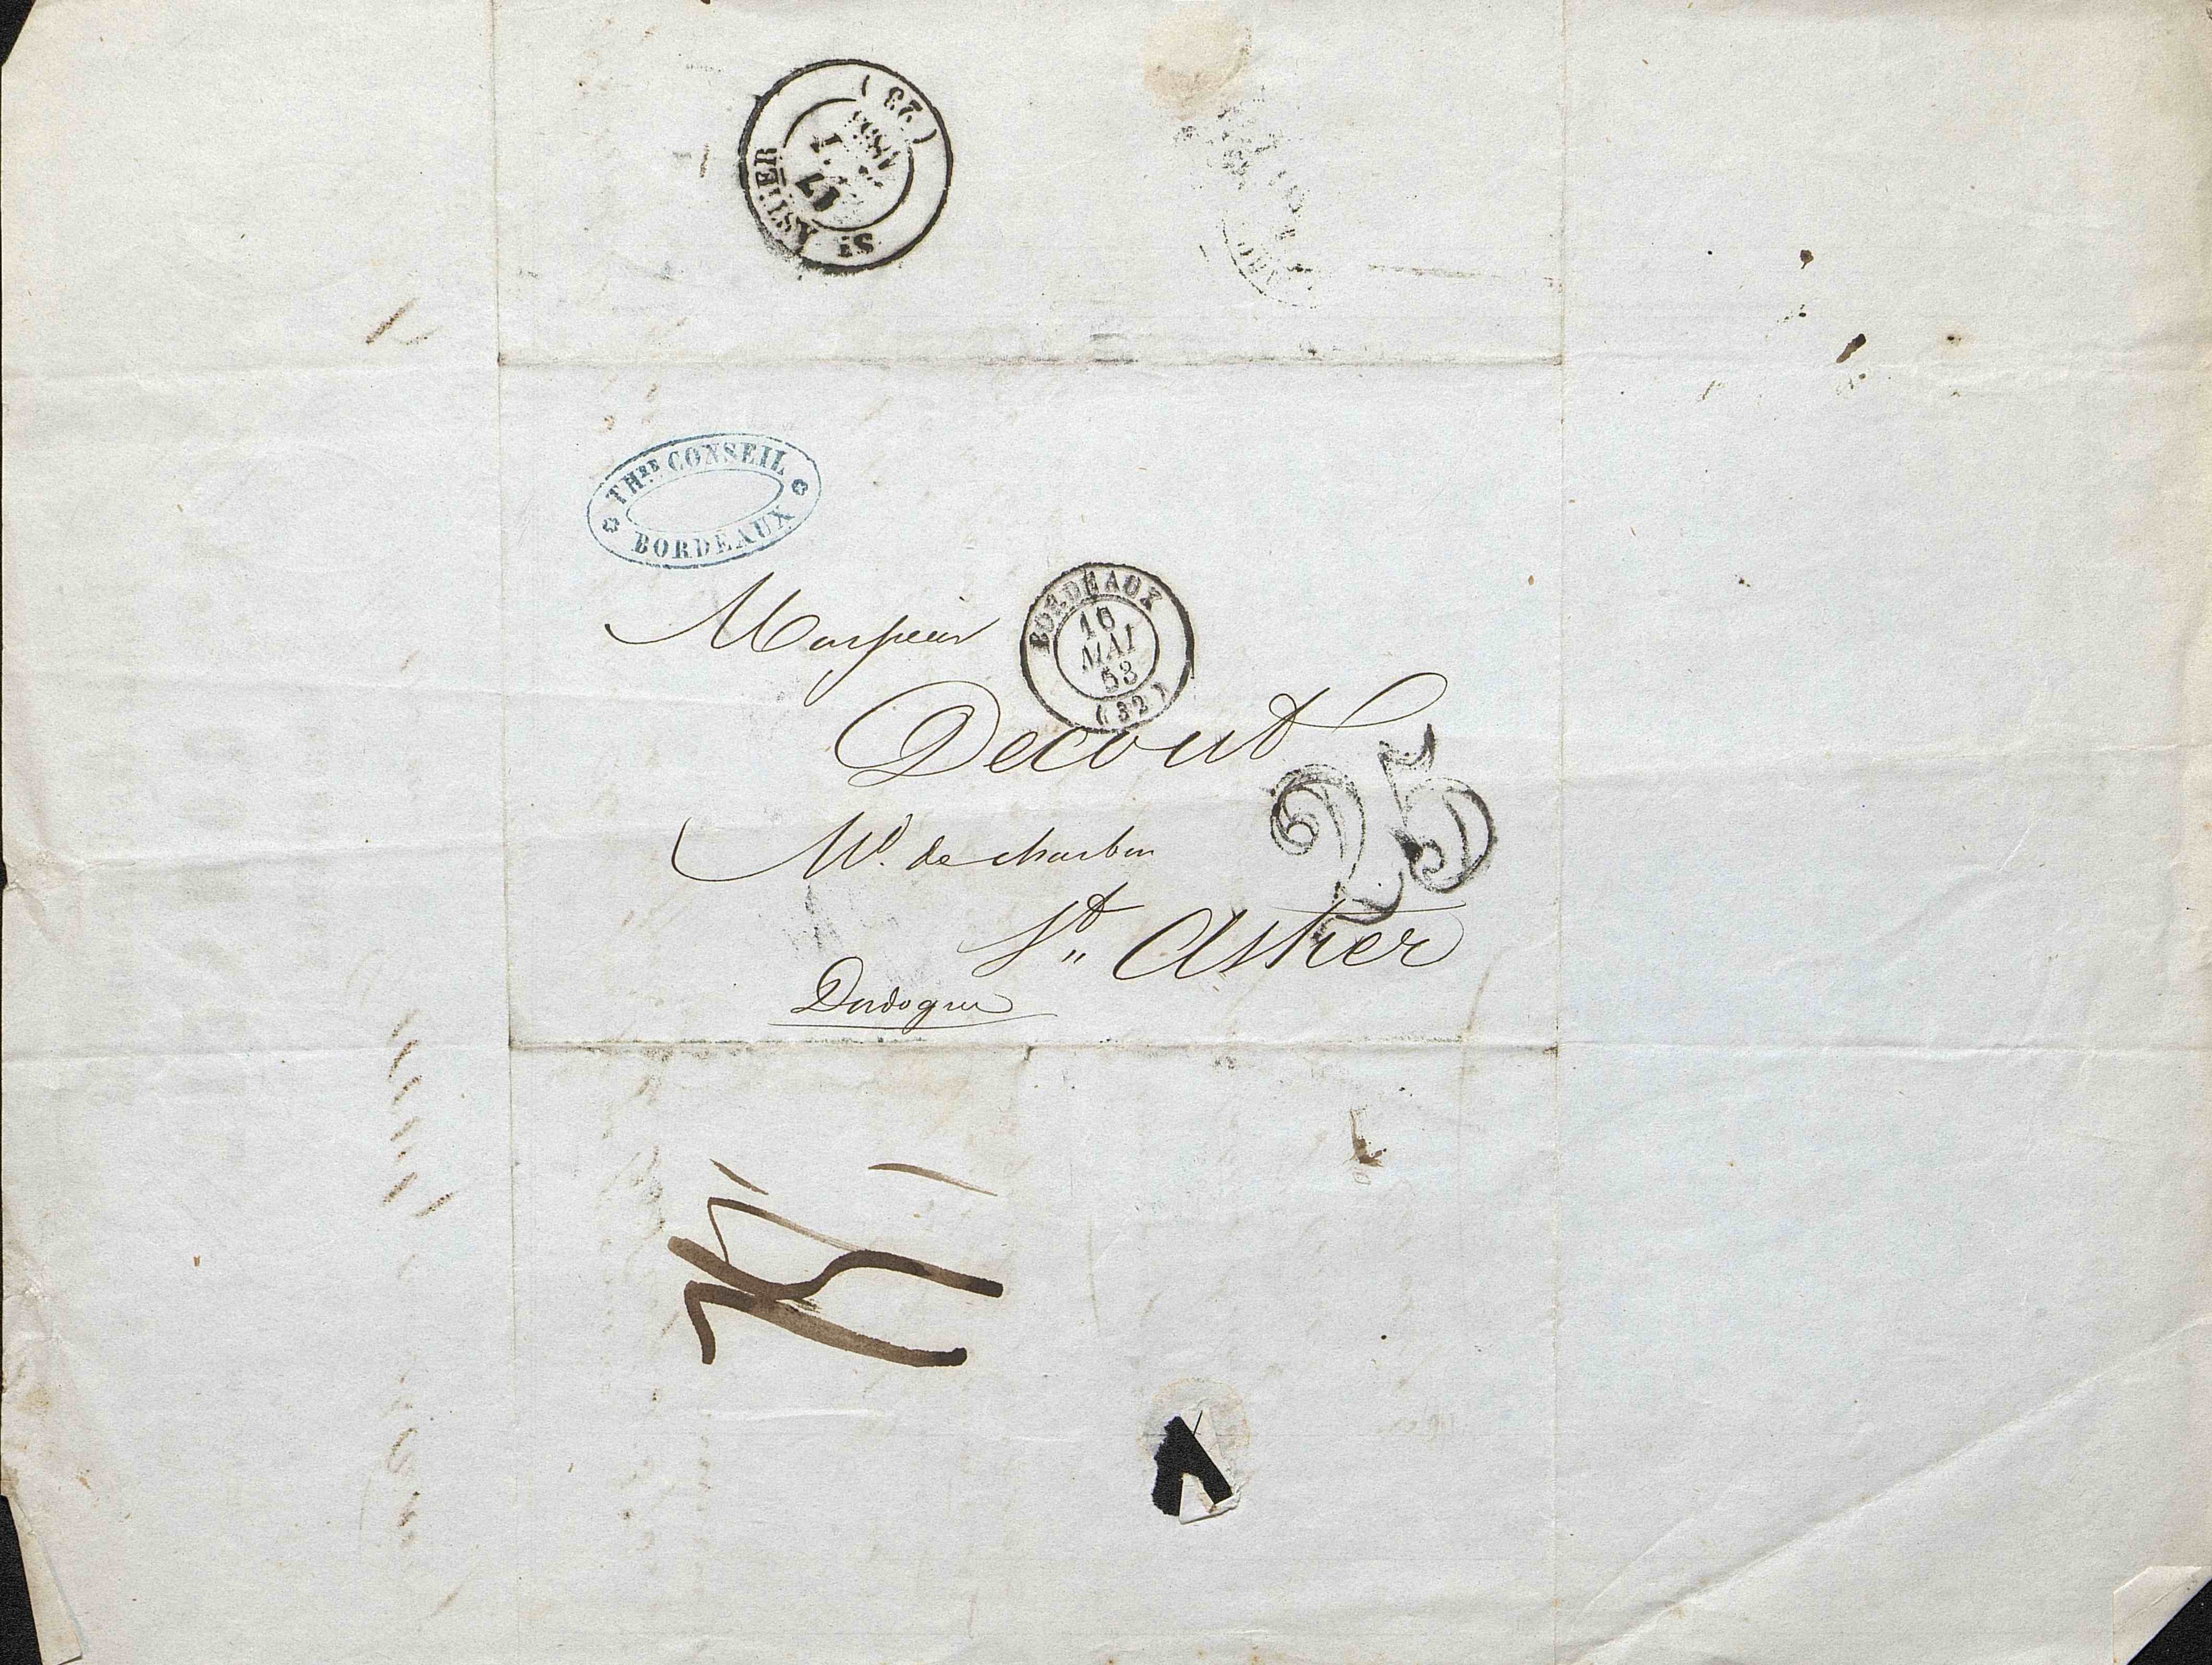 (23)
17
1853
St ASTIER
THRE CONSEIL
BORDEAUX
BORDEAUX
16
MAI
53
(32)
Monsieur
Decout
25
Md. de charbon
St. Astier
Dordogne